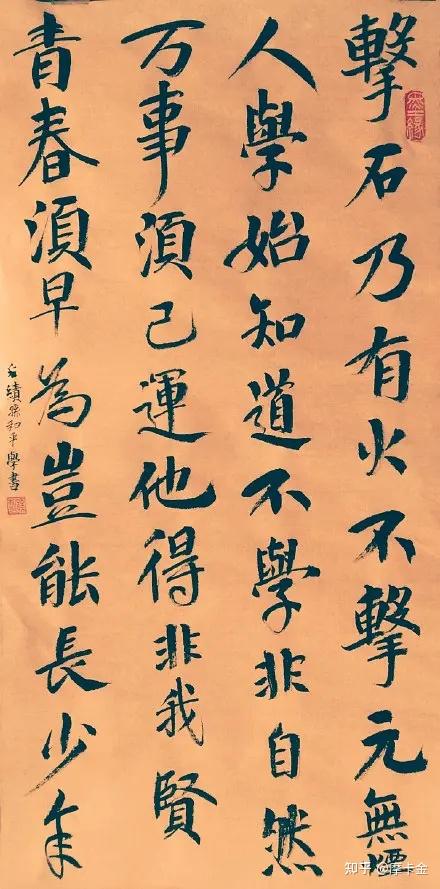 擊石乃有火不擊元無煙
人學始知道不學非自然
万事須己運他得非我賢
青春須早為豈能長少年
和平學書
知乎 @摩卡金